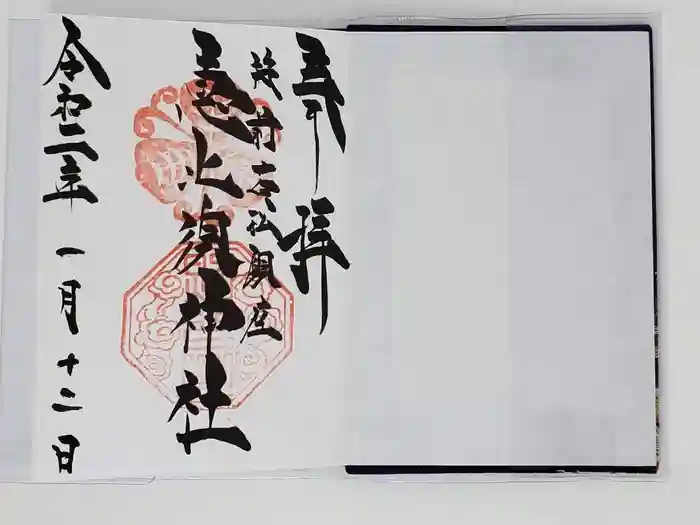 奉拝
筑前
恵比須神社
令和二年
一月十二日